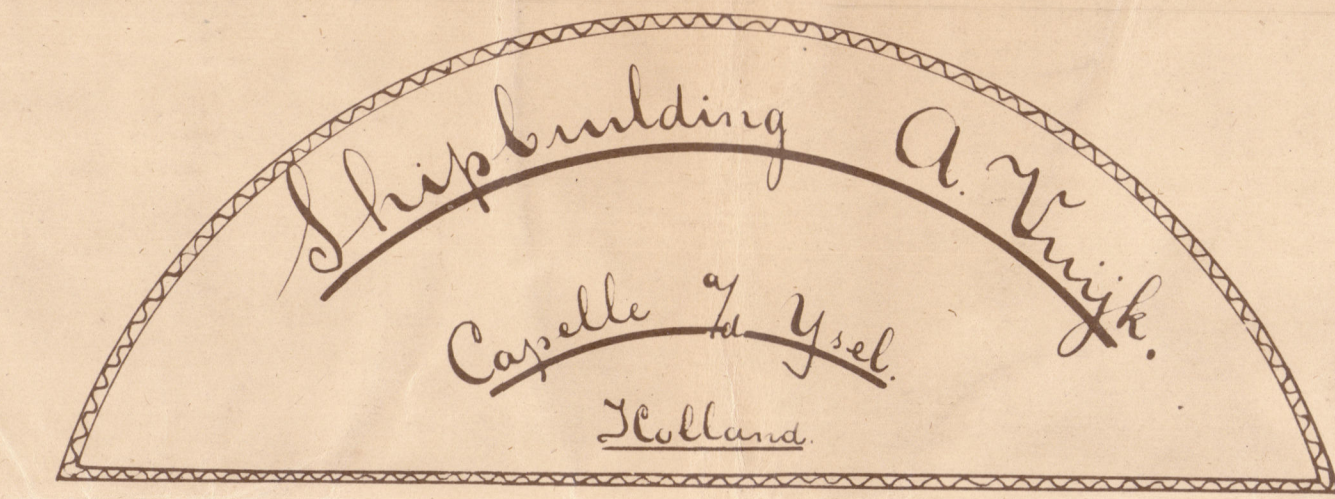 Shipbuilding A. Vuijk.
Capelle a/d Ysel.
Holland.